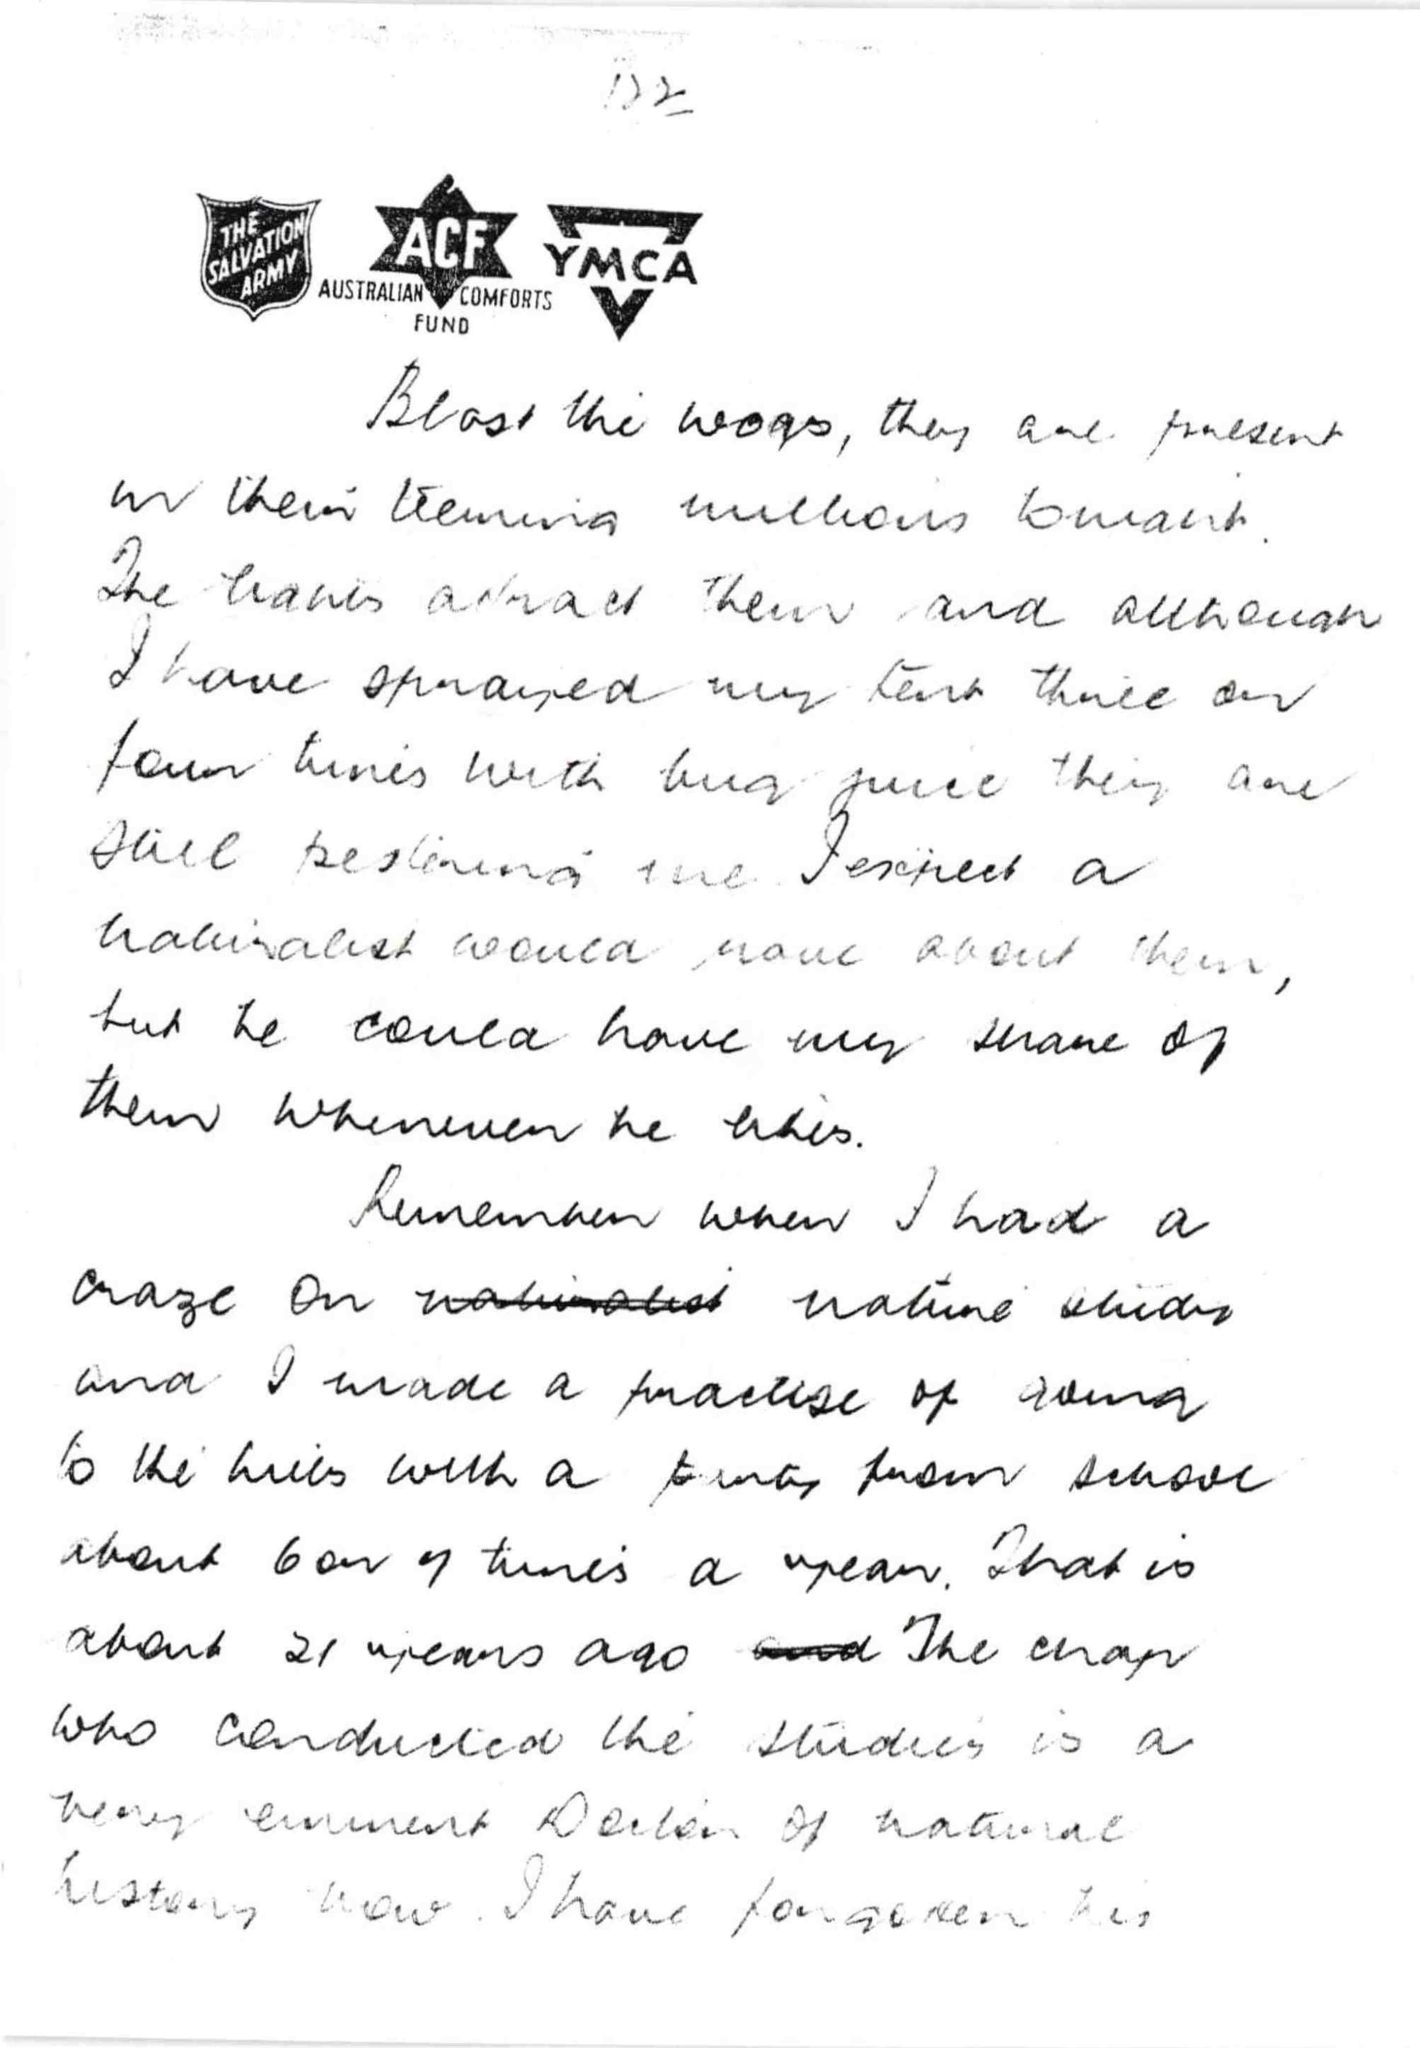 122
THE
SALVATION
ARMY
ACF
AUSTRALIAN COMFORTS
FUND
YMCA
Blast the wogs, they are present
in their teeming millions tonight.
The lights attract them and although
I have sprayed my tent three or
four times with bug juice they are
still pestering me. I expect a
naturalist would rave about them,
but he could have my share of
them whenever he likes.
Remember when I had a
craze on naturalist nature study
and I made a practise of going
to the hills with a party from school
about 6 or 7 times a year. That is
about 21 years ago and The chap
who conducted the studies is a
very eminent Doctor of natural
history now. I have forgotten his